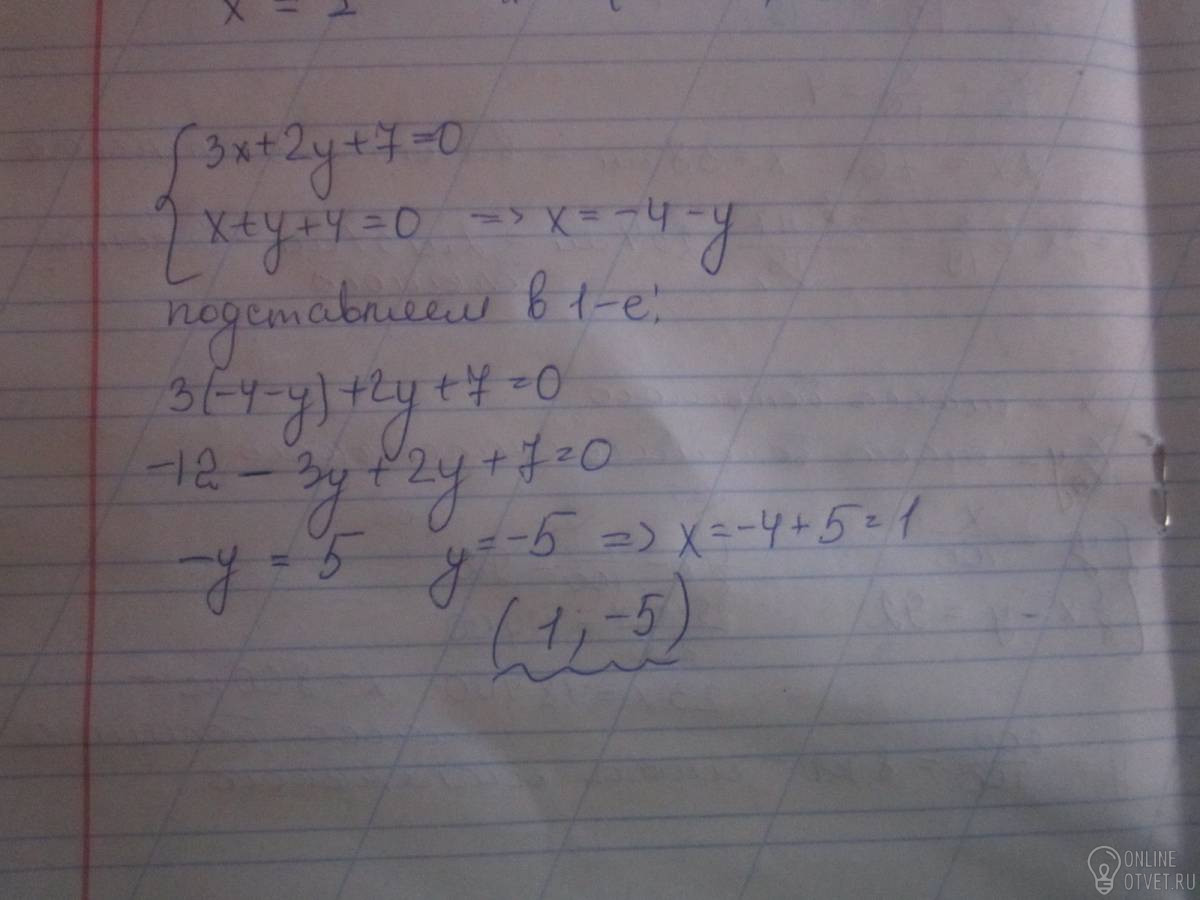 x = 
3x+2y+7=0
x+y+4=0 => x=-4-y
подставляем в 1-е:
3(-4-y)+2y+7=0
-12-3y+2y+7=0
-y=5 y=-5 => x=-4+5=1
(1,-5)
ONLINE
OTVET.RU